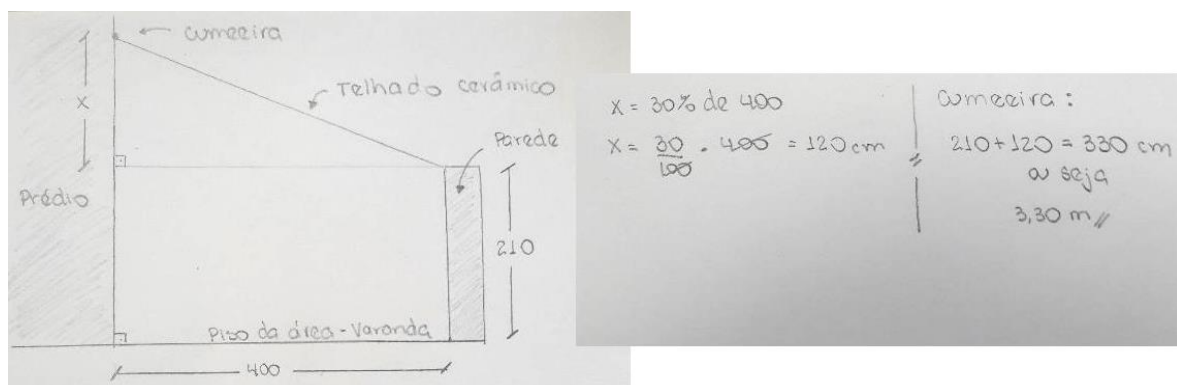 Cumeeira
Telhado cerâmico
x
Parede
Prédio
210
Piso da área - Varanda
400
x = 30% de 400
x = 30/100 . 400 = 120 cm
Cumeeira:
210 + 120 = 330 cm
ou seja
3,30 m //